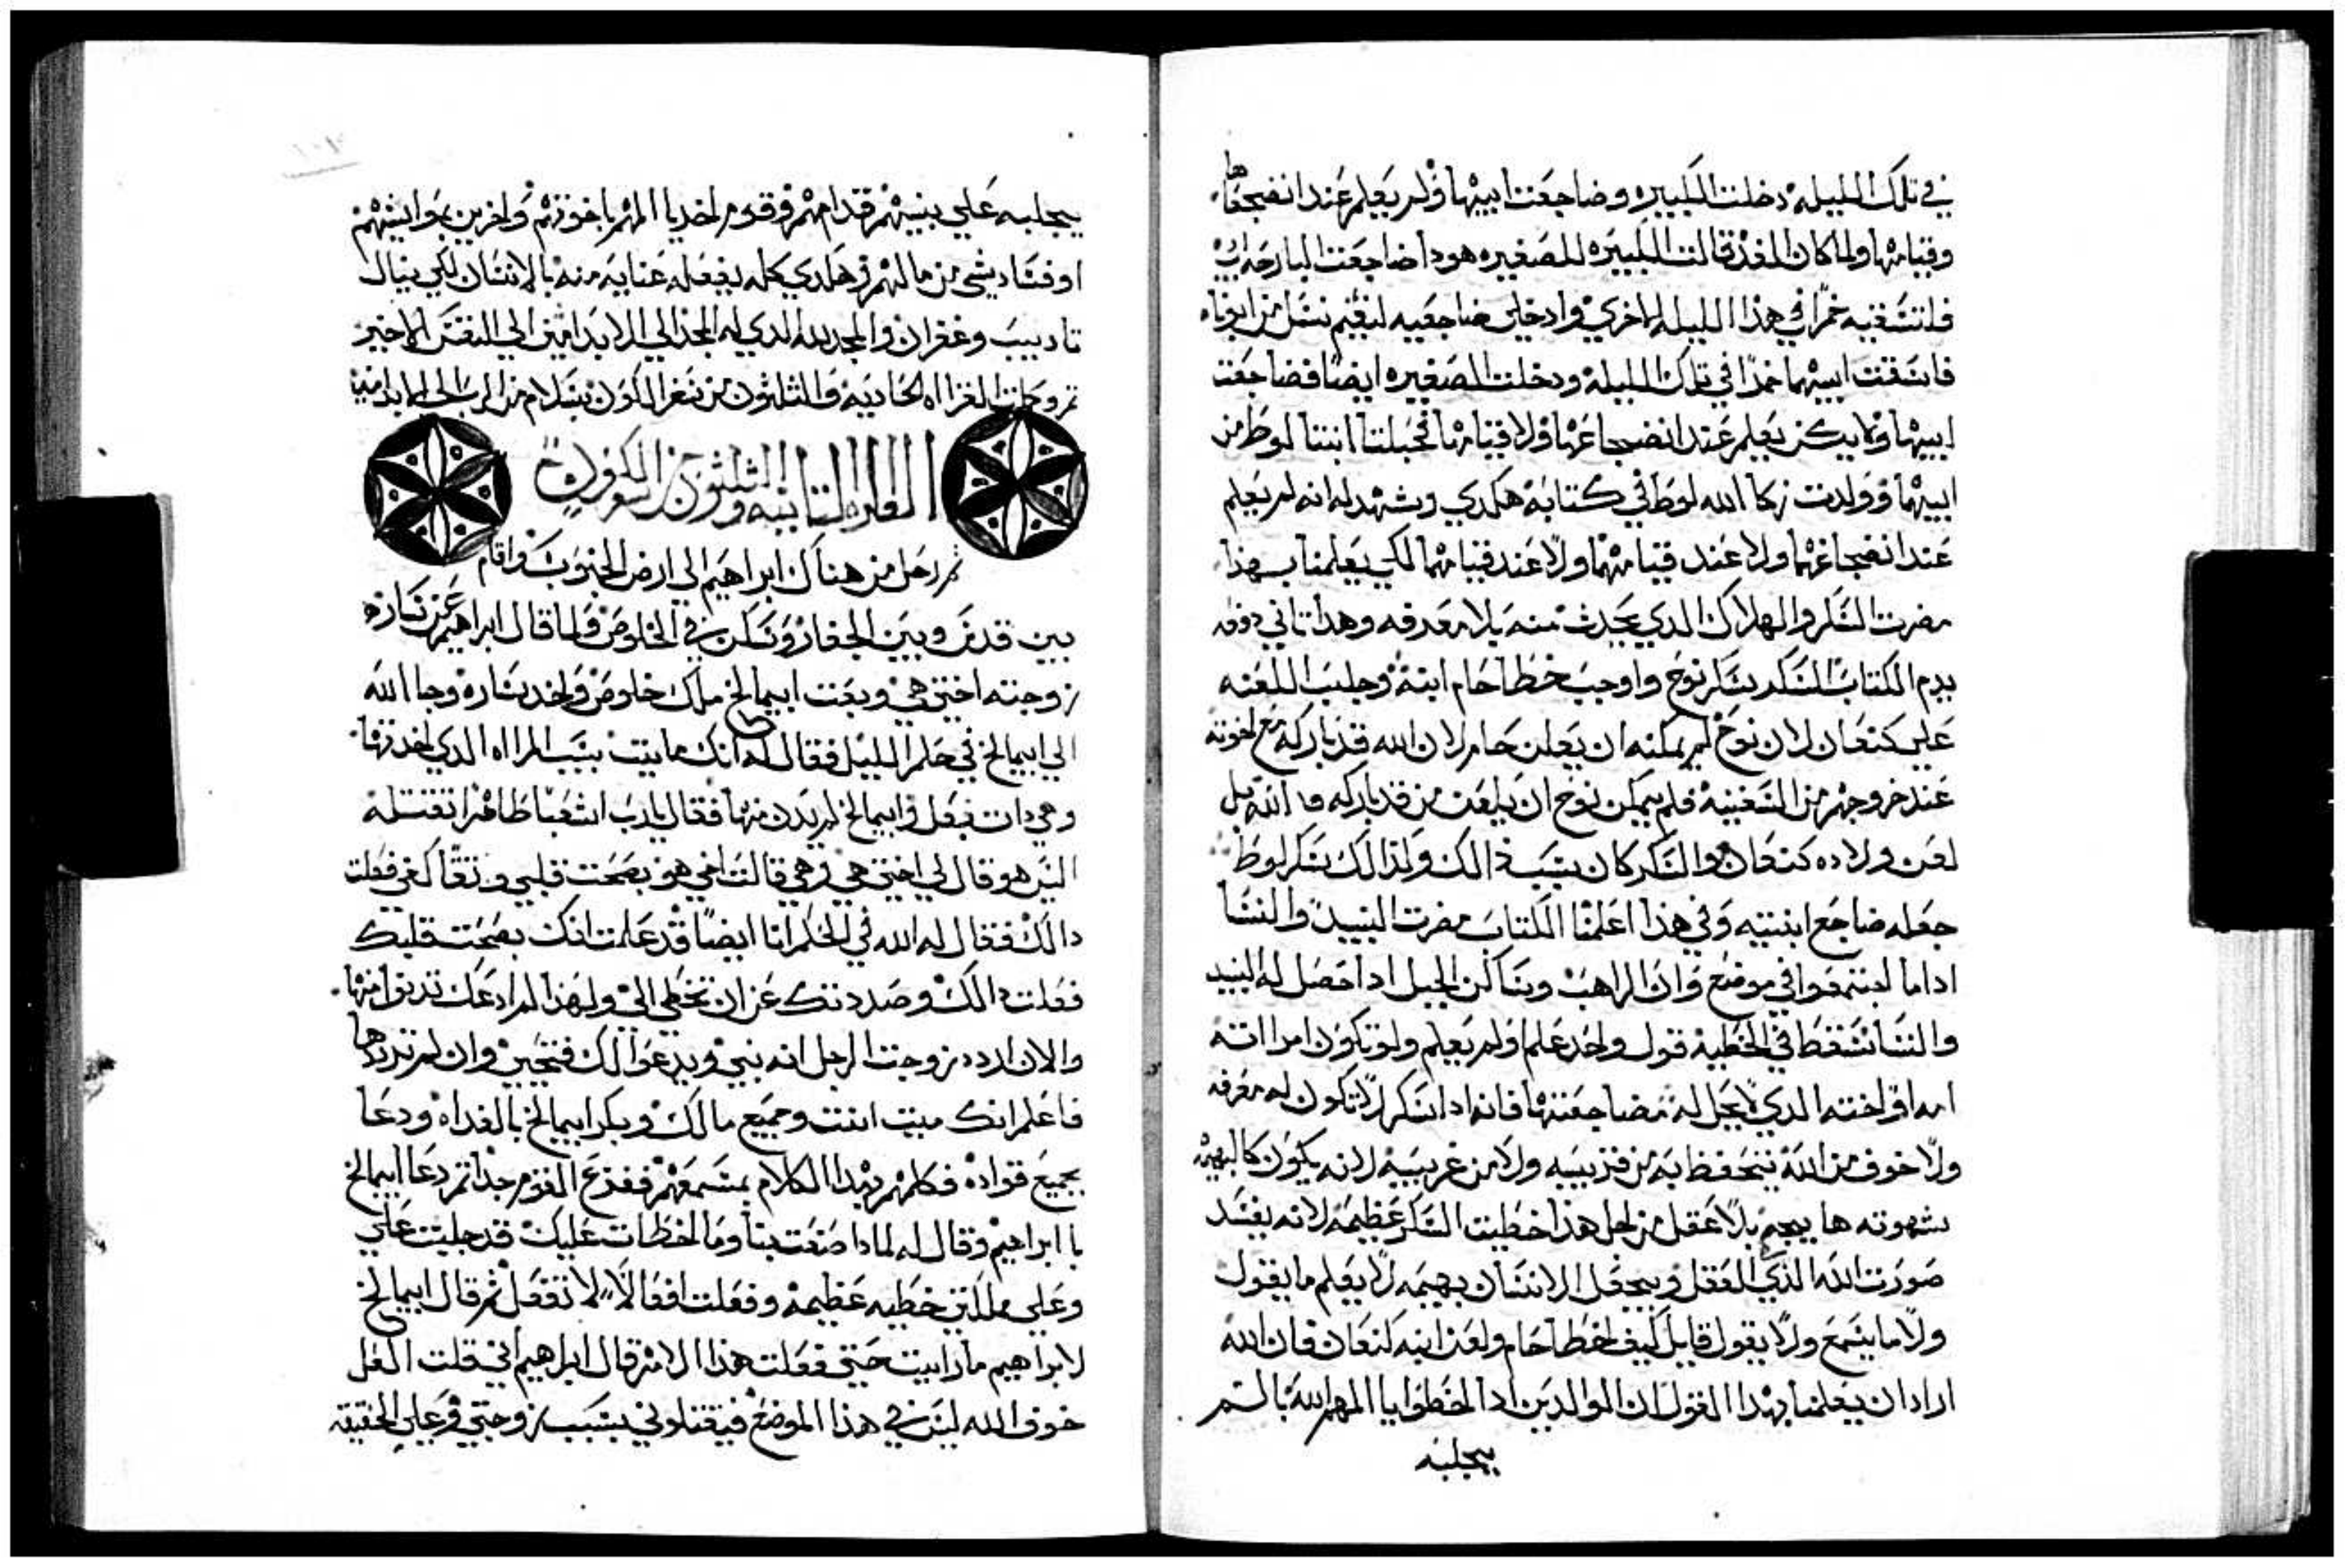 في تلك الليله دخلت الكبيره وضاجعت ابيها ولم يعلم عند انضجاعها
وقيامها ولما كان الغد قالت الكبيره للصغيره هودا ضاجعت البارحه ابي
فلنسقيه خمرا في هذا الليله الاخري وادخلي ضاجعيه لنقيم نسل من ابونا
فاسقت ابيهما خمرا في تلك الليله ودخلت الصغيره ايضا فضاجعت
ابيها ولم يكن يعلم عند انضجاعها ولا قيامها فحبلتا ابنتا لوط من
ابيهما وولدت زكا الله لوط في كتابه هكدي وشهد له انه لم يعلم
عند انضجاعهما ولا عند قيامهما ولا عند قيامهما لكي يعلمنا بهذا
مضرت السكر والهلاك الدي يحدث منه بلا معرفه وهدا تاني دفعه
يدم الكتاب السكر بسكر نوح واوجب خطا حام ابنه وجلب اللعنه
علي كنعان لان نوح لم يمكنه ان يلعن حام لان الله قد باركه مع اخوته
عند خروجهم من السفينه فلم يمكن نوح ان يلعن من قد باركه الله بل
لعن ولاده كنعان والسكر كان سبب ذالك ولذالك سكر لوط
جعله ضاجع ابنتيه وفي هذا اعلمنا الكتاب مضرت النبيد والنسا
اداما اجتمعوا في موضع وان الراهب وساكن الجبل ادا حصل له النبيد
والنسا سقط في الخطيه قول واحد علم اولم يعلم ولو تكون امرااته
امه او اخته الدي لا يحل له مضاجعتها فانه ادا سكر لا تكون له معرفه
ولا خوف من الله يتحفظ به من قريبه ولا من غريبيه لانه يكون كالبهيمه
شهوته هايجه بلا عقل من اجل هذا خطيت السكر عظيمه لانه يفسد
صورت الله الذي العقل ويجعل الانسان بهيمه لا يعلم ما يقول
ولا ما يسمع ولا يقول قايل كيف اخطا حام ولعن ابنه كنعان فان الله
اراد ان يعلمنا بهدا القول ان الوالدين ادا اخطوا يا المهم الله بالسم
يجلبه
يجلبه علي بنيهم قدامهم وقوم اخديا المهم باخوتهم واخرين بمواشيهم
او فساد شي من مالهم هكدي كله يفعله عنايه منه بالانسان لكي ينال
تاديب وغفران والمجد لله الدي له المجد الي الابد امين الي النفس الاخير
تم وكملت القرااه الحاديه والثلثون من سفر الكون بسلام من الرب الي الابد امين
القراه التانيه والثلثون من سفر الكون
ثم رحل من هناك ابراهيم الي ارض الجنوب واقام
بين قدس وبين الجفار وسكن في الخلوص ولما قال ابراهيم عن ساره
زوجته اختي هي وبعت ابيمالخ ملك خلوص واخد ساره وجا الله
الي ابيمالخ في حلم الليل فقال له انك مايت بسبب المرااه الدي اخدتها
وهي دات بعل وابيمالخ لم يدن منها فقال يارب اشعبا طاهرا تقتله
اليس هو قال لي اختي هي وهي قالت اخي هو بصحت قلبي ونقا كفي فعلت
دالك فقال له الله في الحلم انا ايضا قد علمت انك بصحت قلبك
فعلت دالك وصددتك عن ان تخطي الي ولهذا لم ادعك تدنوا منها
والان اردد زوجت الرجل انه نبي ويدعوا لك فتحيي وان لم ترددها
فاعلم انك ميت انت وجميع مالك وبكر ابيمالخ بالغداه ودعا
بجميع قواده فكلمهم بهدا الكلام بمسمعهم ففزع القوم جدا ثم دعا ابيمالخ
با ابراهيم وقال له لمادا صنعت بنا وما اخطات عليك قد جلبت علي
وعلي مملكتي خطيه عظيمه وفعلت افعالا لا تفعل ثم قال ابيمالخ
لابراهيم مادا رايت حتي فعلت هذا الامر قال ابراهيم اني قلت لعل
خوف الله ليس في هذا الموضع فيقتلوني بسبب زوجتي وعلي الحقيقه